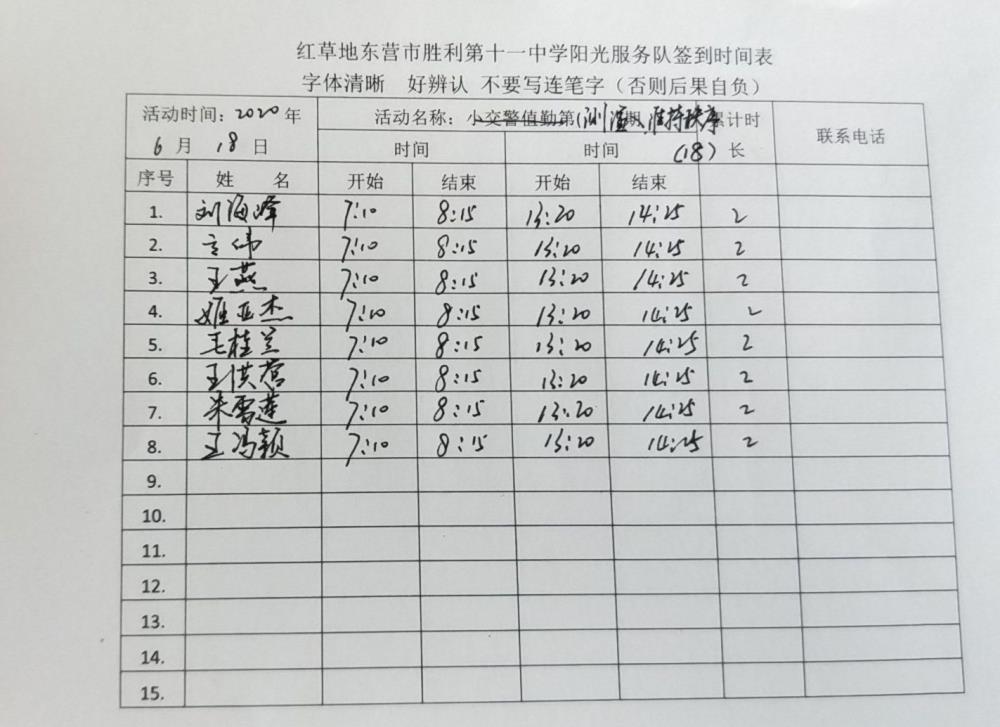 红草地东营市胜利第十一中学阳光服务队签到时间表
字体清晰 好辨认 不要写连笔字（否则后果自负）
活动时间：2020年 活动名称：小交警值勤第 期 测温、维持秩序 累计时 联系电话
6月 18日 时间 时间 (18) 长
序号 姓 名 开始 结束 开始 结束
1. 刘海峰 7:10 8:15 13:20 14:25 2
2. 7:10 8:15 13:20 14:25 2
3. 王燕 7:10 8:15 13:20 14:25 2
4. 姬亚杰 7:10 8:15 13:20 14:25 2
5. 毛桂兰 7:10 8:15 13:20 14:25 2
6. 王洪营 7:10 8:15 13:20 14:25 2
7. 朱雪莲 7:10 8:15 13:20 14:25 2
8. 王冯颖 7:10 8:15 13:20 14:25 2
9.
10.
11.
12.
13.
14.
15.